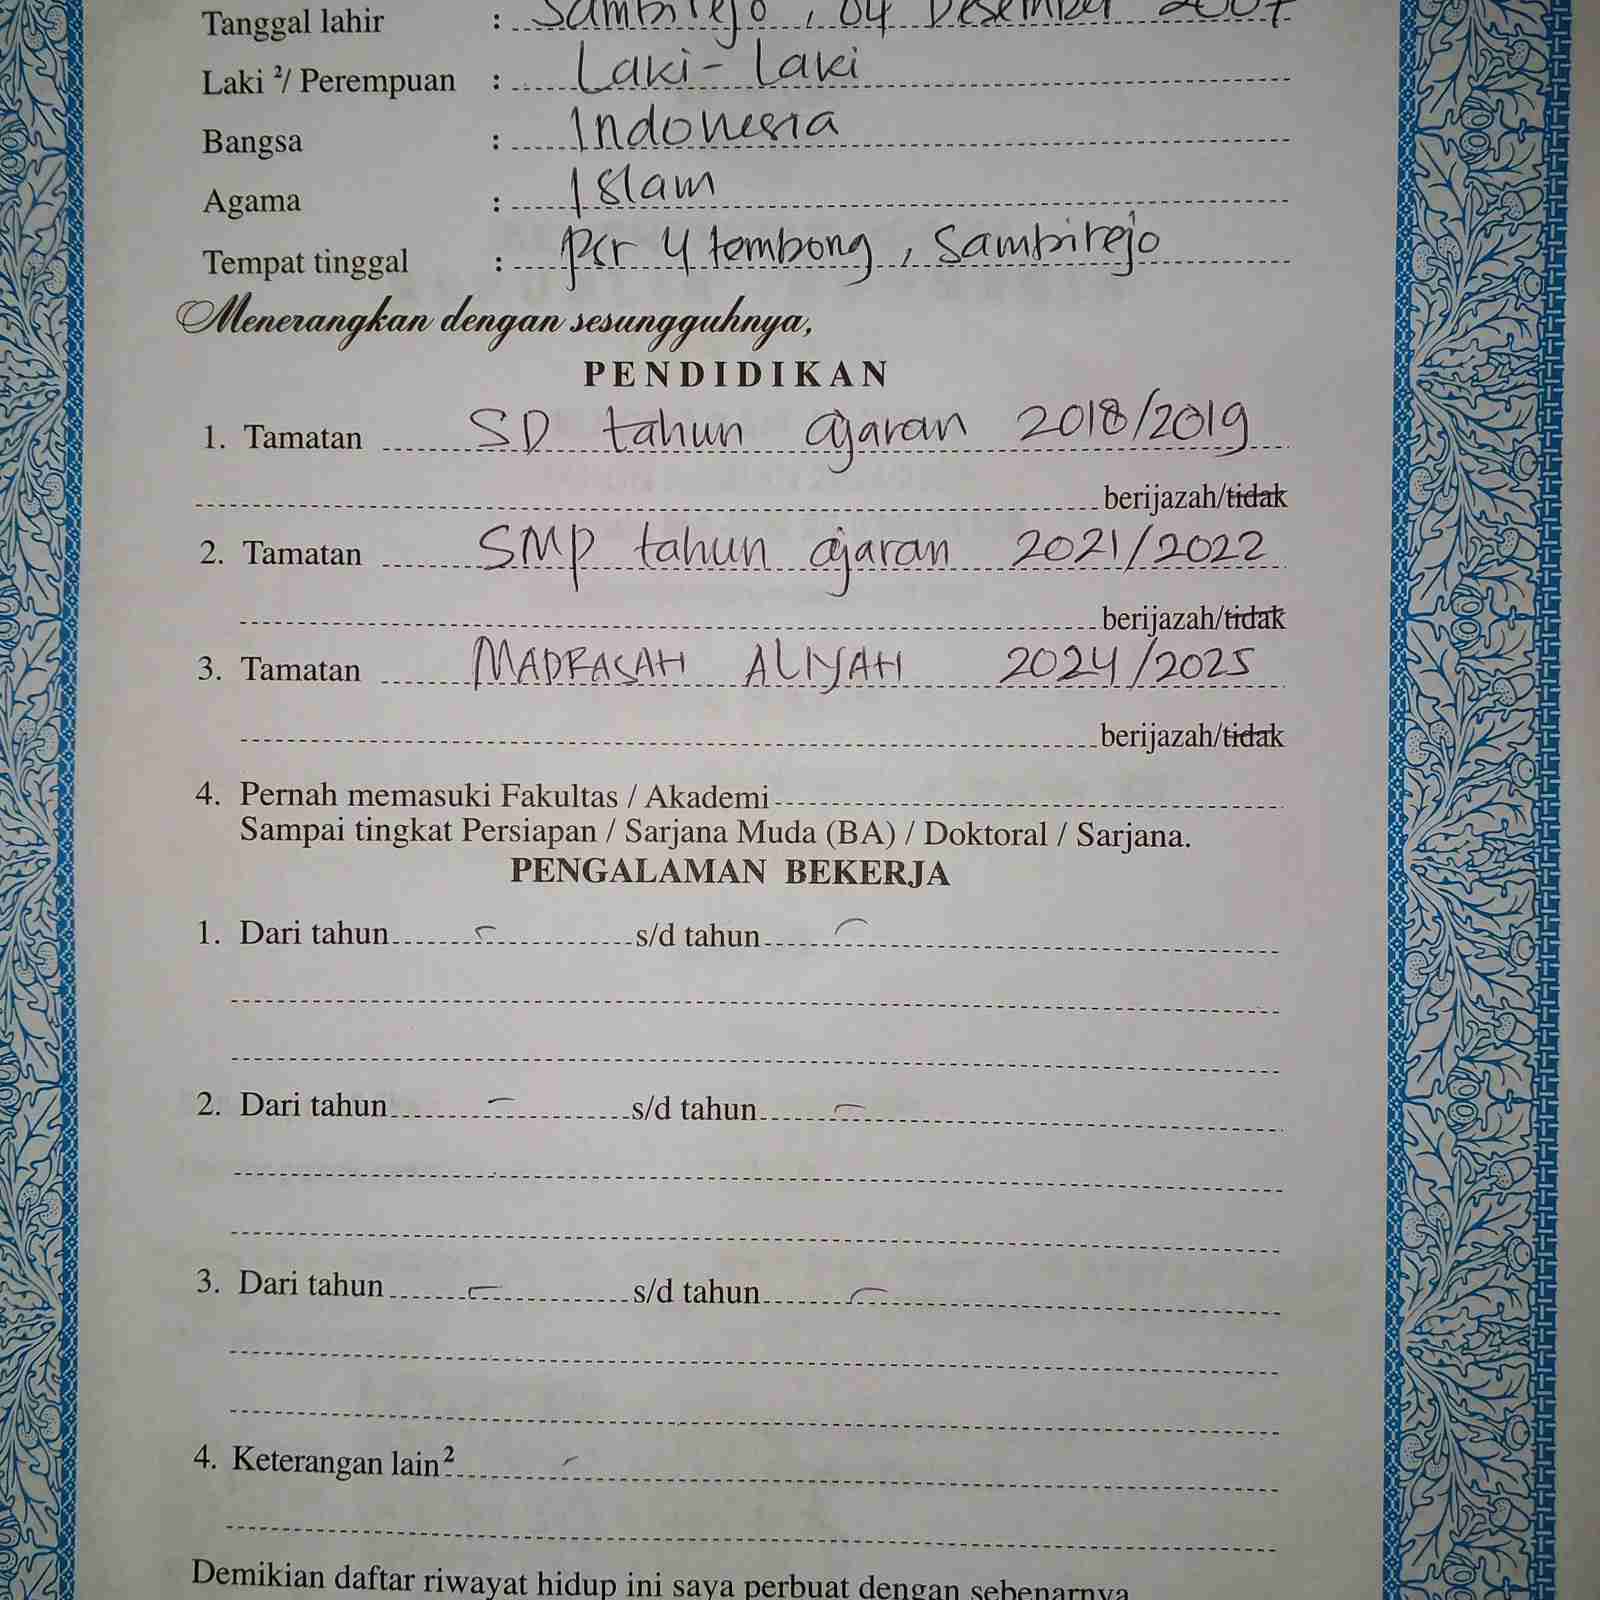 Tanggal lahir : Sambirejo, 04 Desember 2007
Laki ²/ Perempuan : Laki-Laki
Bangsa : Indonesia
Agama : Islam
Tempat tinggal : psr 4 tembong, Sambirejo
Menerangkan dengan sesungguhnya,
PENDIDIKAN
1. Tamatan SD tahun ajaran 2018/2019
berijazah/tidak
2. Tamatan SMP tahun ajaran 2021/2022
berijazah/tidak
3. Tamatan MADRASAH ALIYAH 2024/2025
berijazah/tidak
4. Pernah memasuki Fakultas / Akademi
Sampai tingkat Persiapan / Sarjana Muda (BA) / Doktoral / Sarjana.
PENGALAMAN BEKERJA
1. Dari tahun - s/d tahun -
2. Dari tahun - s/d tahun -
3. Dari tahun - s/d tahun -
4. Keterangan lain² -
Demikian daftar riwayat hidup ini saya perbuat dengan sebenarnya